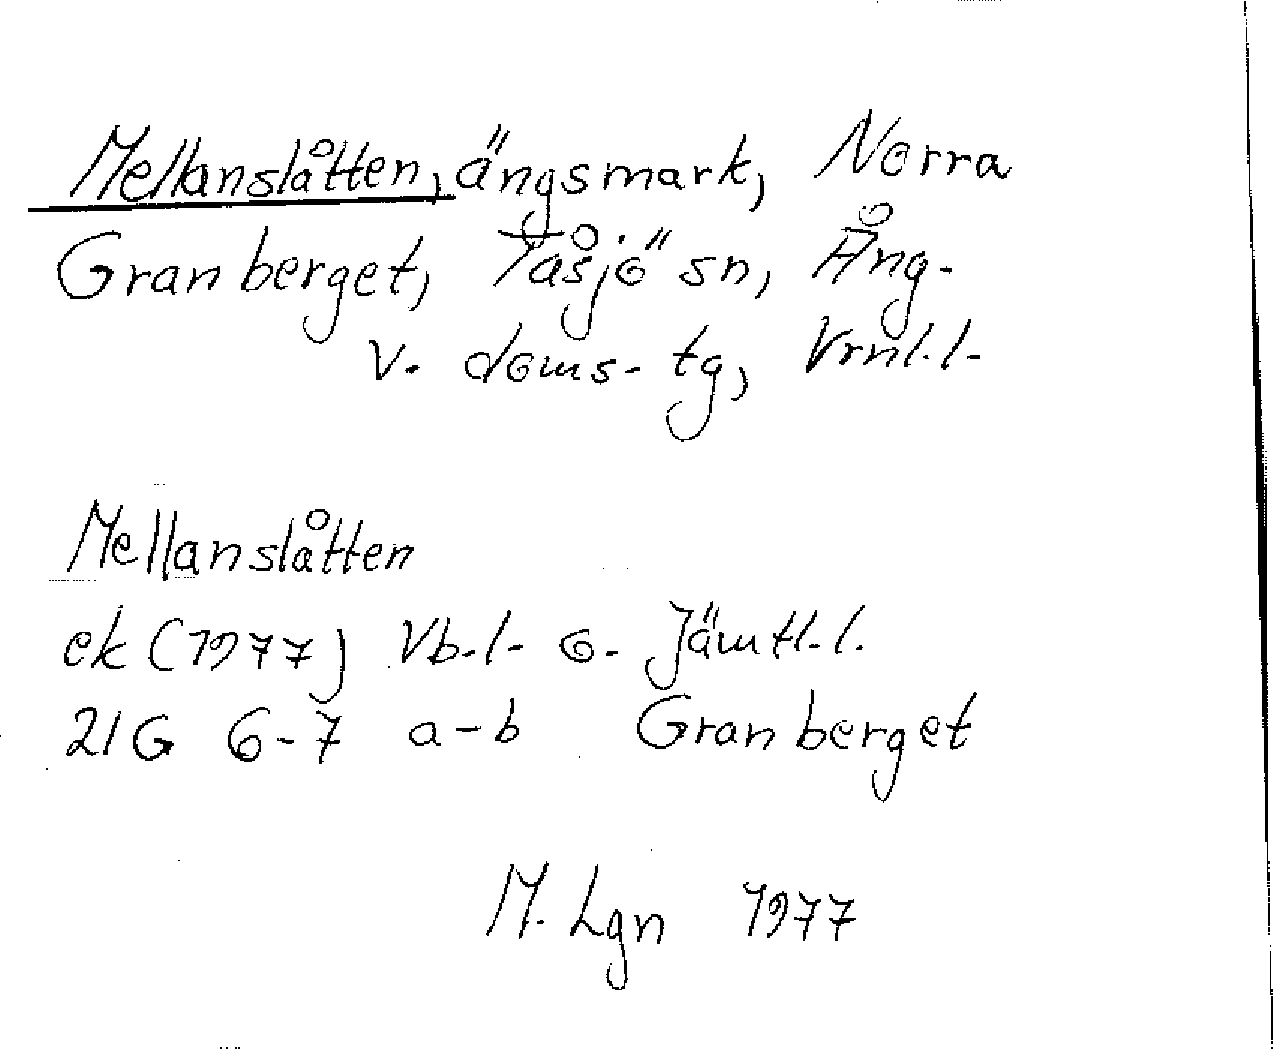 Mellanslåtten, ängsmark, Norra
Granberget, Tåsjö sn, Ång-
v. doms- tg, Vrnl.l-
Mellanslåtten
ek (1977) Vb.l- o. Jämtl.l.
21G 6-7 a-b Granberget
M. Lgn 1977